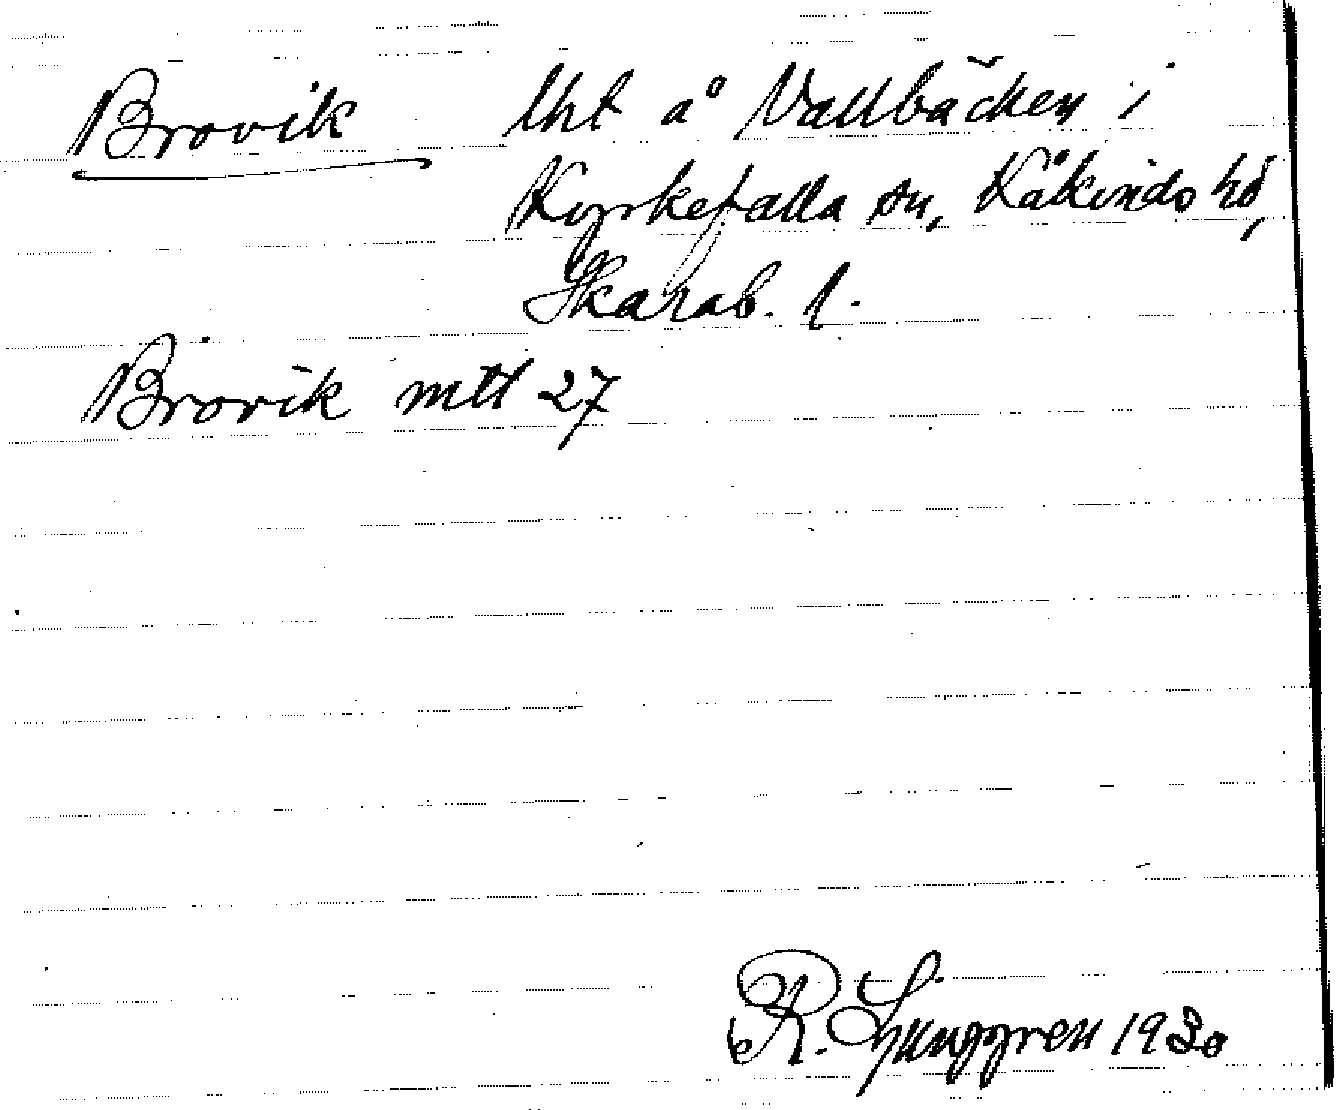 Brovik lht å Vallbäcken i
Kyrkefalla sn, Kåkinds hd,
Skarab. l.
Brovik mtl 27
R. Ljunggren 1930